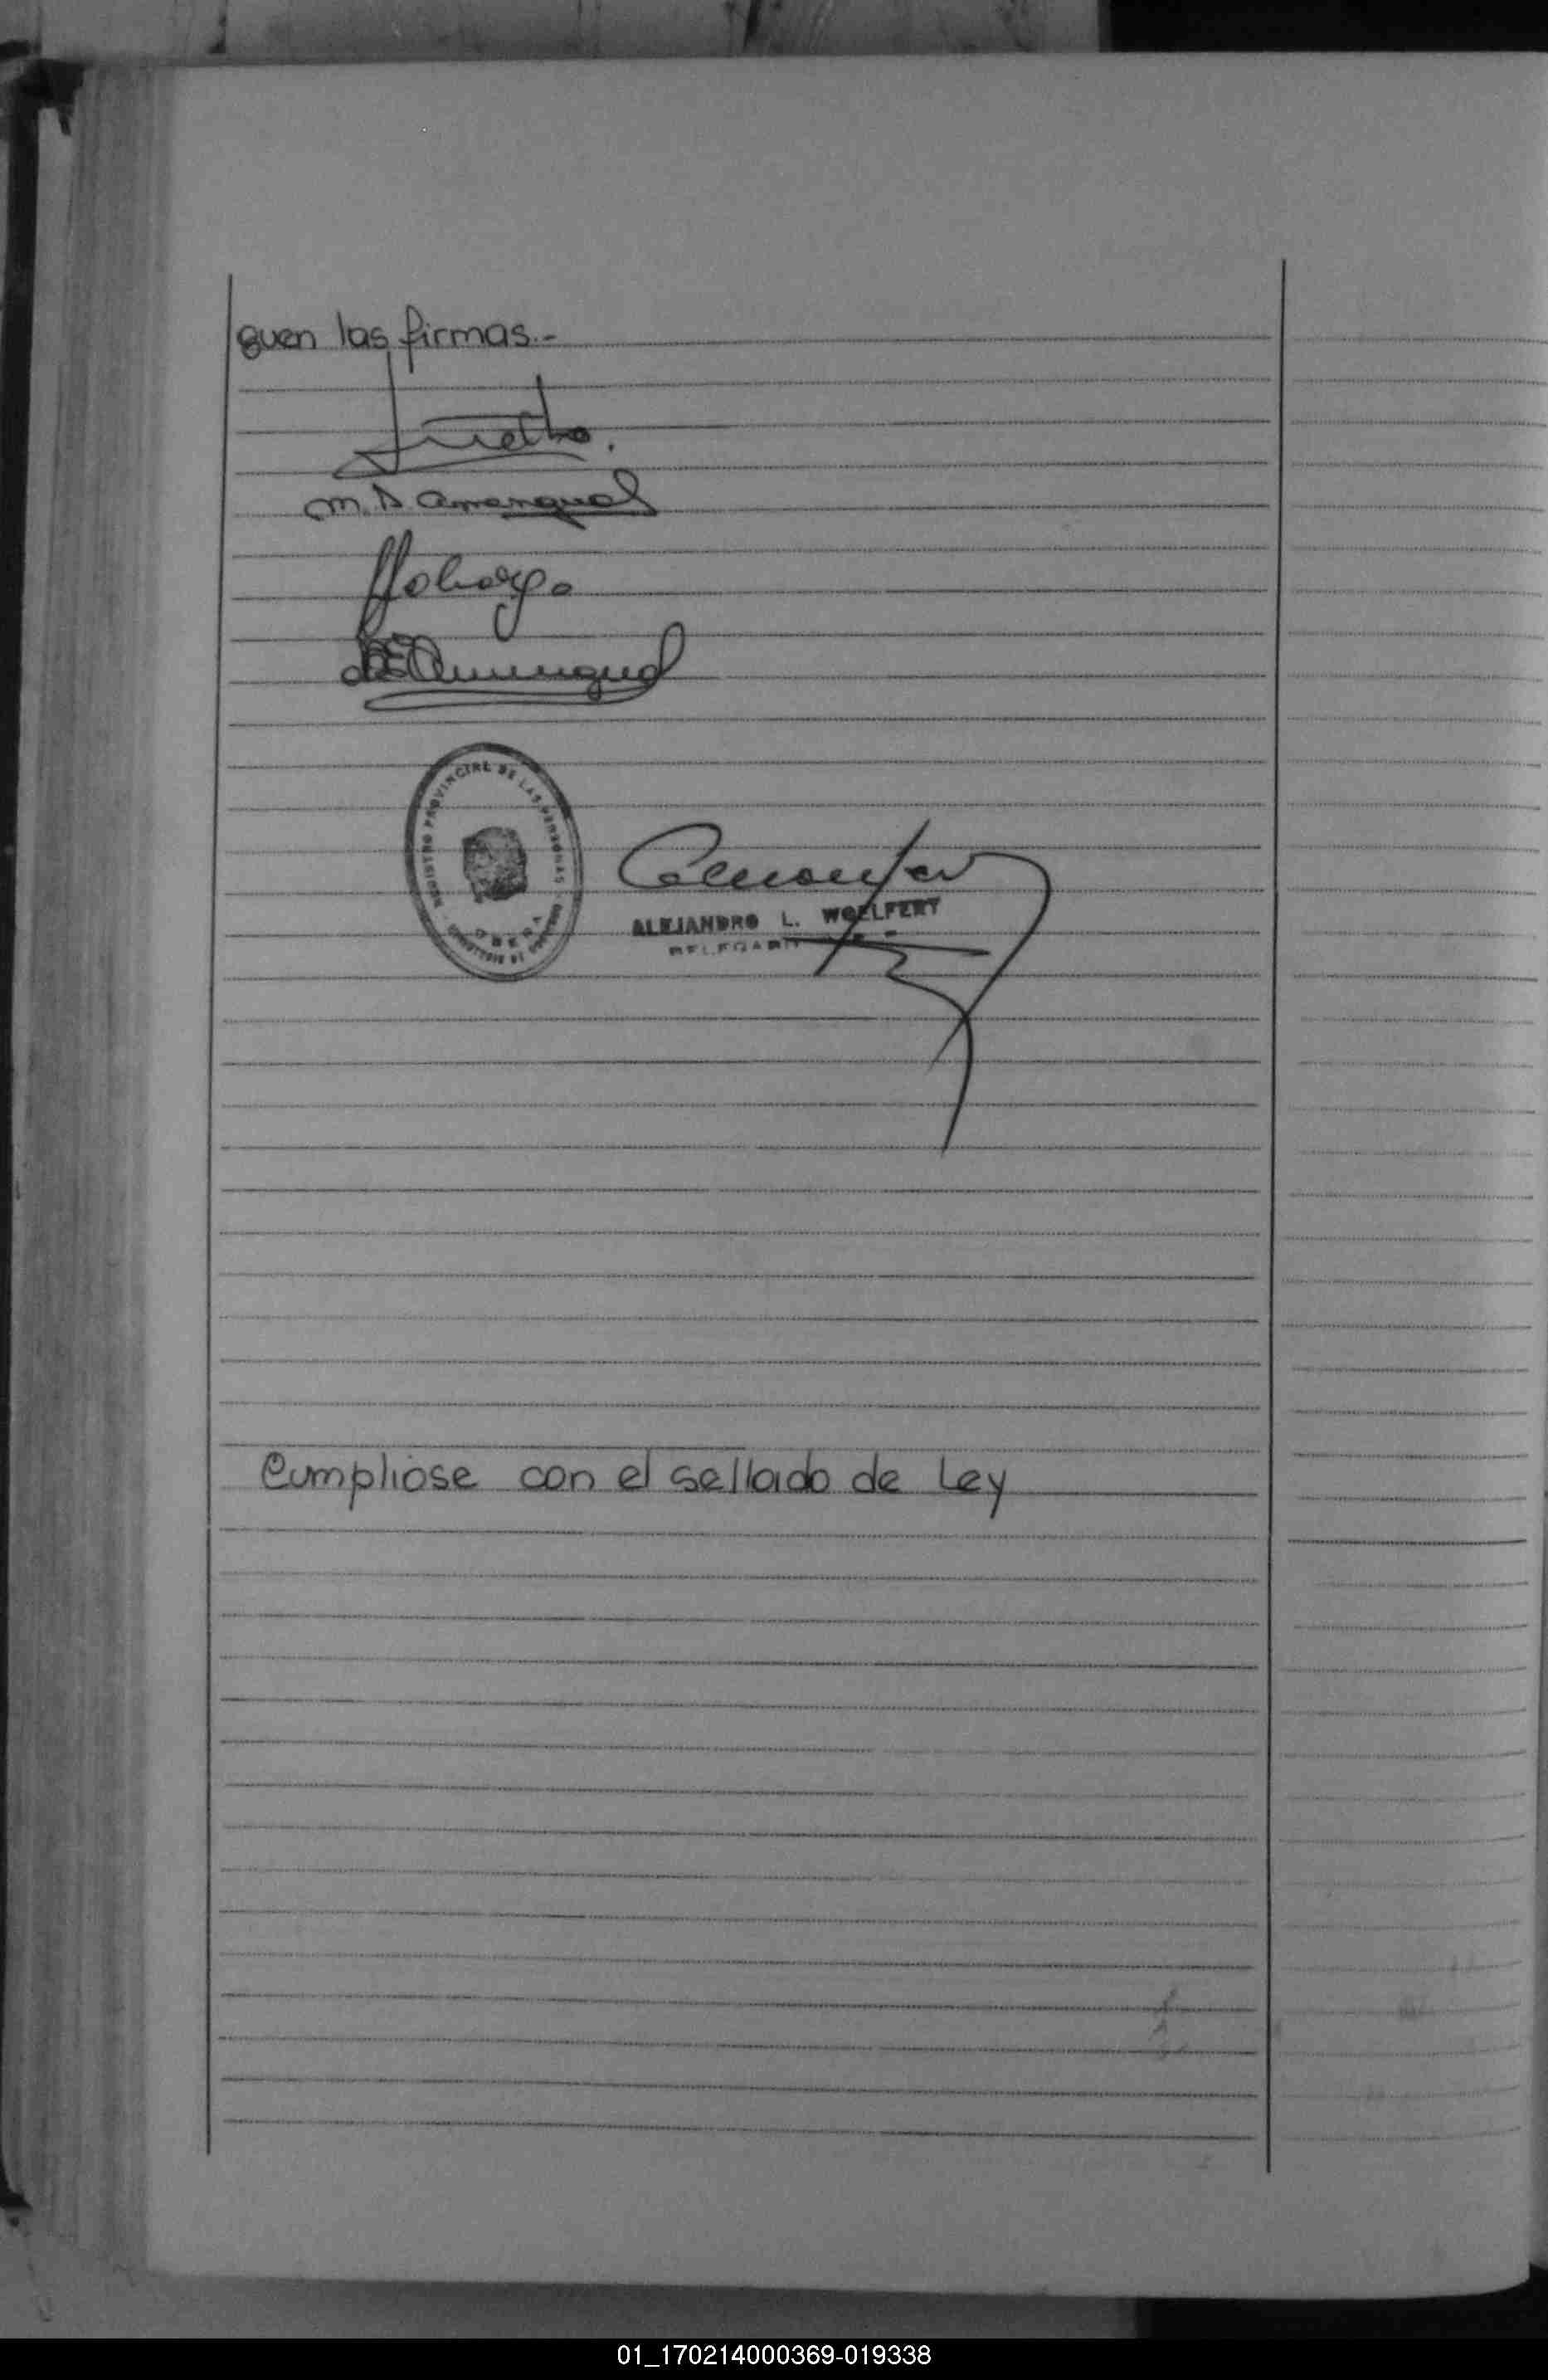 guen las firmas.-
M. D. Amengual
Amengual
REGISTRO PROVINCIAL DE LAS PERSONAS
OBERA
ALEJANDRO L. WOELFERT
DELEGADO
Cumpliose con el sellado de Ley
01_170214000369-019338